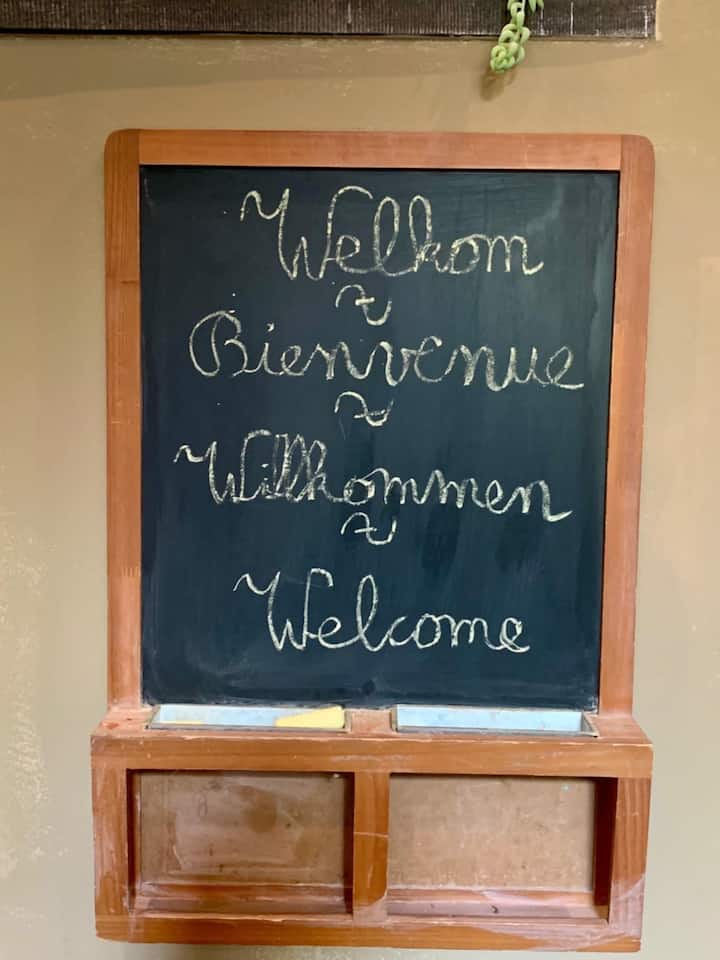 Welkom
~
Bienvenue
~
Willkommen
~
Welcome